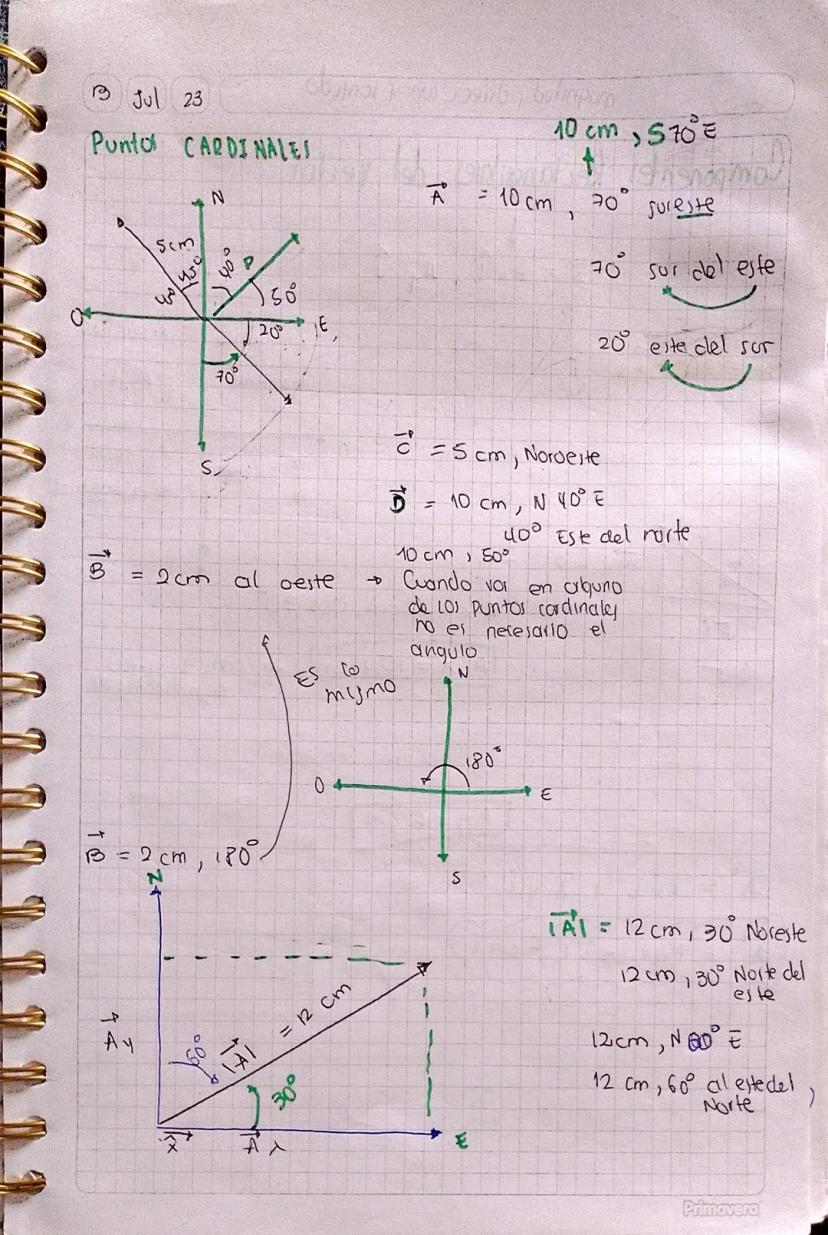 13 Jul 23
Puntos CARDINALES
10 cm, S 70° E
A = 10 cm, 70° sureste
70° sur del este
20° este del sur
N
5 cm
45°
40°
D
45°
50°
O
20°
E
70°
S
C = 5 cm, Noroeste
D = 10 cm, N 40° E
40° Este del norte
10 cm, 50°
B = 2 cm al oeste → Cuando va en alguno
de los puntos cardinales
no es necesario el
angulo
Es lo
mismo
N
180°
O
E
S
B = 2 cm, 180°
N
|A| = 12 cm, 30° Noreste
12 cm, 30° Norte del
este
12 cm, N 60° E
12 cm, 60° al este del
Norte
A y
60°
|A| = 12 cm
30°
X
A x
E
Primavera